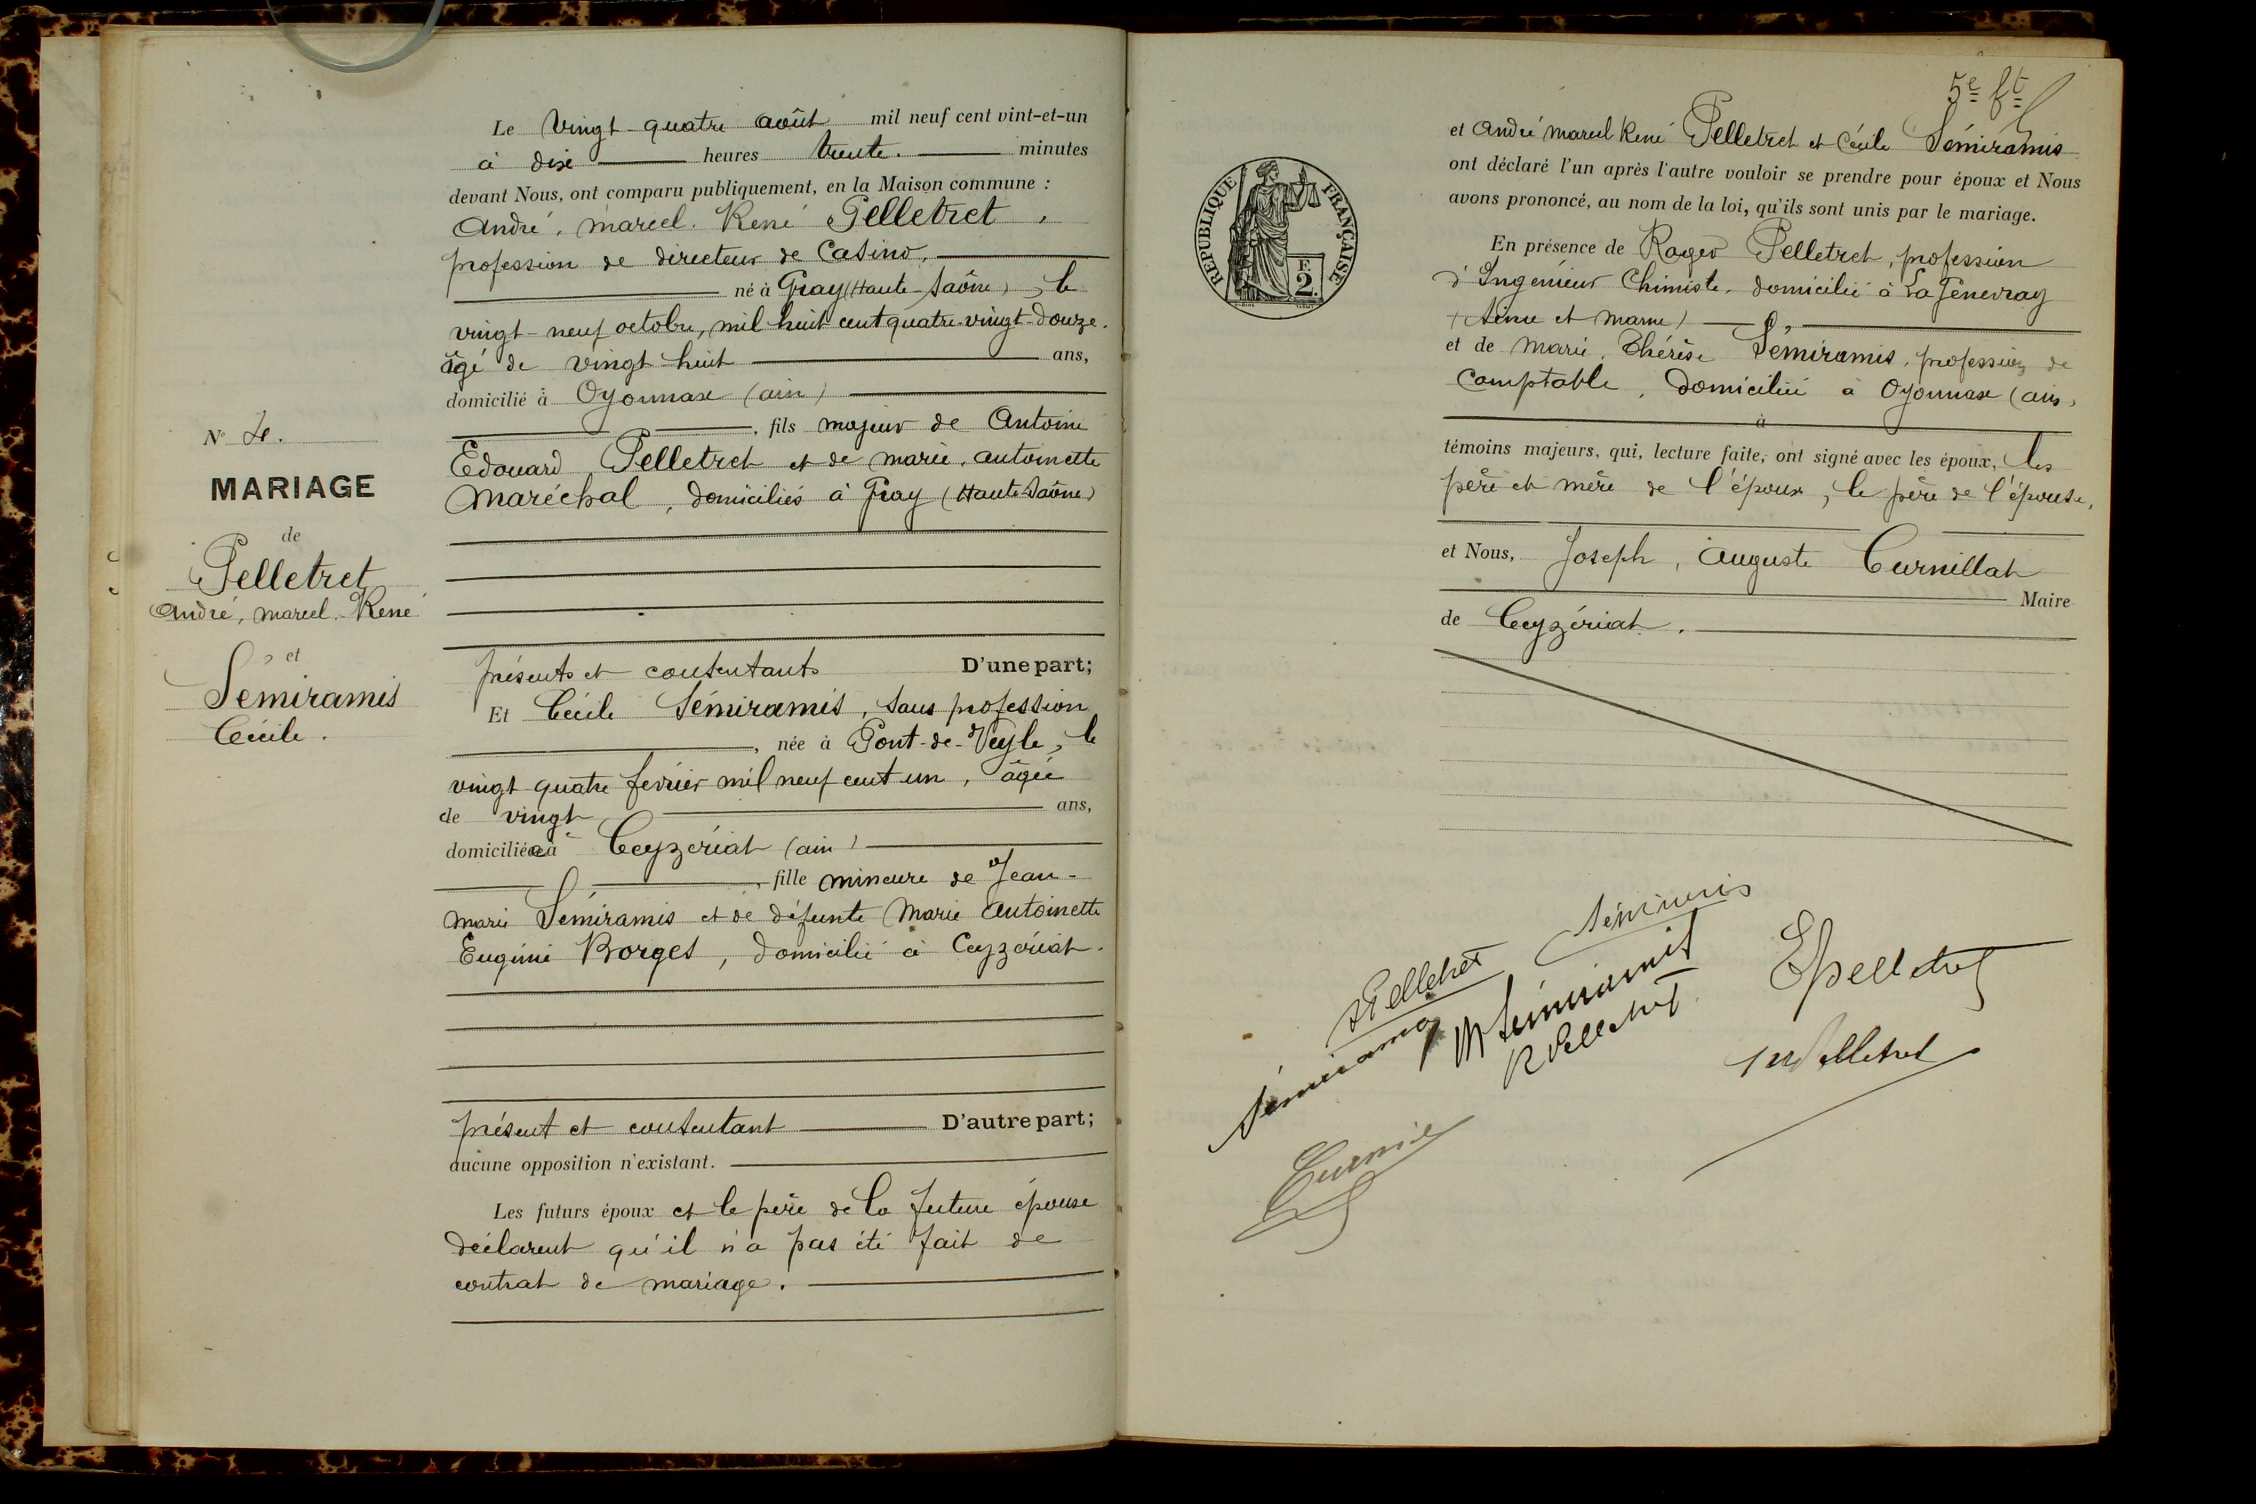 Le vingt-quatre août mil neuf cent vint-et-un
à dix heures trente. minutes
devant Nous, ont comparu publiquement, en la Maison commune :
André, Marcel. René Pelletret,
profession de directeur de Casino.
né à Gray (Haute-Saône), le
vingt-neuf octobre, mil huit cent quatre-vingt-douze.
âgé de vingt-huit ans,
domicilié à Oyonnax (ain)
, fils majeur de Antoine
Edouard Pelletret et de Marie. Antoinette
Maréchal, domiciliés à Gray (Haute-Saône)
présents et consentants D'une part;
Et Cécile Sémiramis, sans profession
, née à Pont-de-Veyle, le
vingt quatre février mil neuf cent un, âgée
de vingt ans,
domiciliée à Ceyzériat (ain)
, fille mineure de Jean-
Marie Sémiramis et de défunte Marie Antoinette
Eugénie Borges, domicilié à Ceyzériat.
présent et consentant D'autre part;
aucune opposition n'existant.
Les futurs époux et le père de la future épouse
déclarent qu'il n'a pas été fait de
contrat de mariage.
N° 4.
MARIAGE
de
Pelletret
André, Marcel. René
et
Sémiramis
Cécile.
5e ft
et André Marcel René Pelletret et Cécile Sémiramis
ont déclaré l'un après l'autre vouloir se prendre pour époux et Nous
avons prononcé, au nom de la loi, qu'ils sont unis par le mariage.
En présence de Roger Pelletret, profession
d'Ingénieur Chimiste. domicilié à La Genevray
(Seine et Marne)
et de Marie. Thérèse Sémiramis, profession de
Comptable, domiciliée à Oyonnax (ain)
à
témoins majeurs, qui, lecture faite, ont signé avec les époux, les
père et mère de l'époux, le père de l'épouse,
et Nous, Joseph, Auguste Curnillat
Maire
de Ceyzériat.
RÉPUBLIQUE FRANÇAISE
F.
2.
Pelletret
M Sémiramis
R Pelletret
EPelletret
M Pelletret